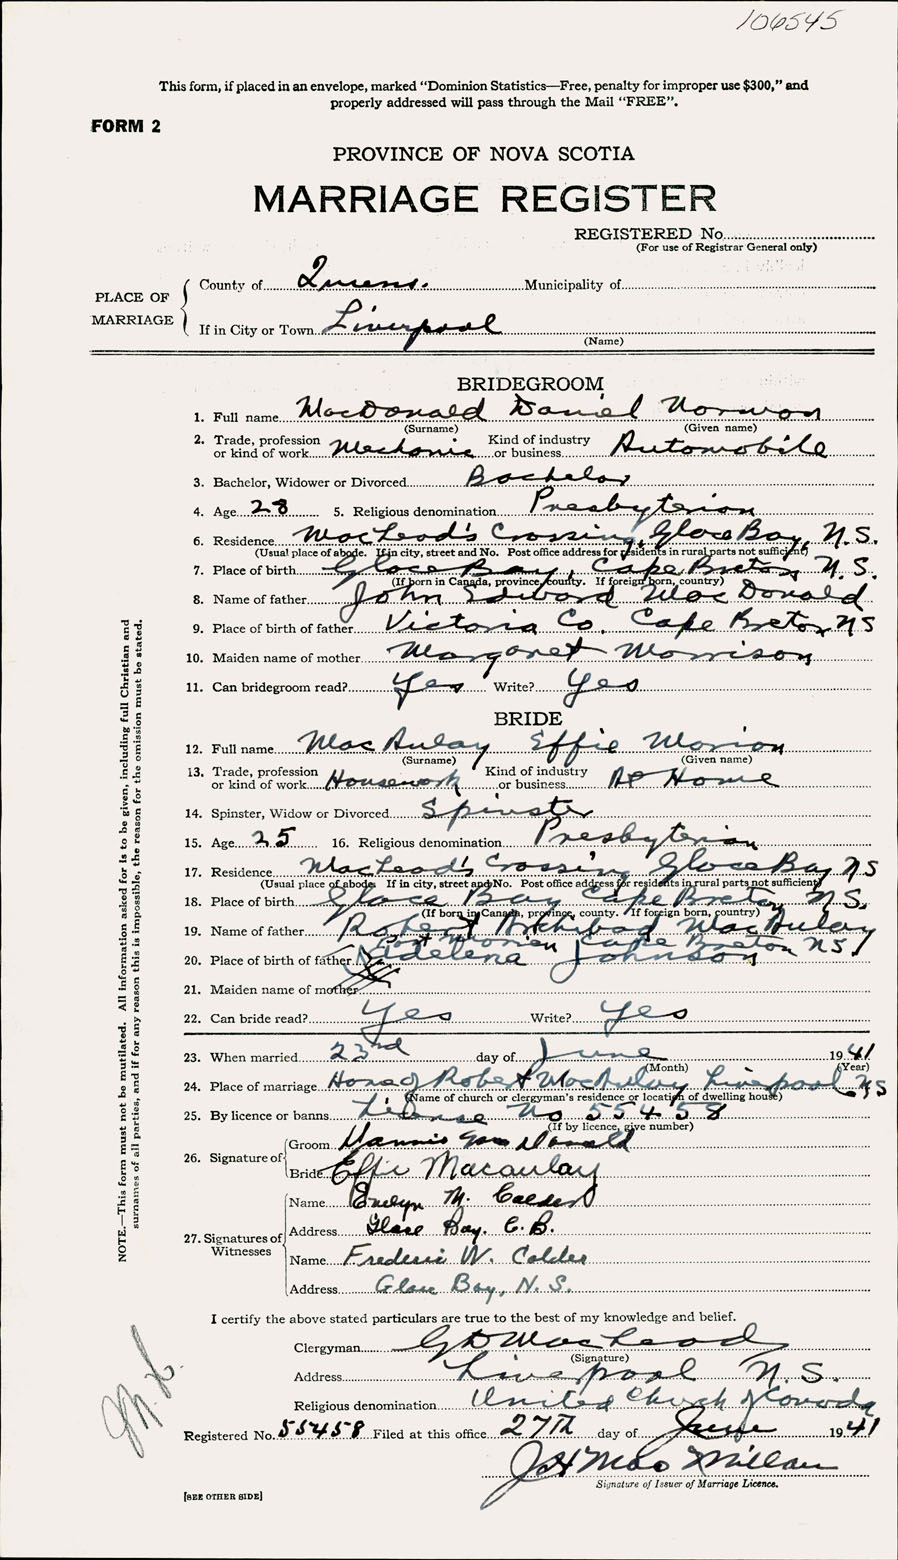 106545
This form, if placed in an envelope, marked "Dominion Statistics—Free, penalty for improper use $300," and
properly addressed will pass through the Mail "FREE".
FORM 2
PROVINCE OF NOVA SCOTIA
MARRIAGE REGISTER
REGISTERED No.
(For use of Registrar General only)
PLACE OF MARRIAGE
County of Queens. Municipality of
If in City or Town Liverpool
(Name)
BRIDEGROOM
1. Full name MacDonald Daniel Norman
(Surname) (Given name)
2. Trade, profession or kind of work Mechanic Kind of industry or business Automobile
3. Bachelor, Widower or Divorced Bachelor
4. Age 28 5. Religious denomination Presbyterian
6. Residence MacLead's Crossing, Glace Bay, N.S.
(Usual place of abode. If in city, street and No. Post office address for residents in rural parts not sufficient)
7. Place of birth Glace Bay, Cape Breton N.S.
(If born in Canada, province, county. If foreign born, country)
8. Name of father John Edward MacDonald
9. Place of birth of father Victoria Co. Cape Breton NS
10. Maiden name of mother Margaret Morrison
11. Can bridegroom read? Yes Write? Yes
BRIDE
12. Full name MacAulay Effie Marion
(Surname) (Given name)
13. Trade, profession or kind of work Housework Kind of industry or business At Home
14. Spinster, Widow or Divorced Spinster
15. Age 25 16. Religious denomination Presbyterian
17. Residence MacLead's Crossing Glace Bay NS
(Usual place of abode. If in city, street and No. Post office address for residents in rural parts not sufficient)
18. Place of birth Glace Bay Cape Breton N.S.
(If born in Canada, province, county. If foreign born, country)
19. Name of father Robert Archibald MacAulay
Port Morien Cape Breton NS
20. Place of birth of father Madelena Johnson
21. Maiden name of mother
22. Can bride read? Yes Write? Yes
23. When married 23rd day of June 1941
(Month) (Year)
24. Place of marriage Home of Robert MacAulay Liverpool NS
(Name of church or clergyman's residence or location of dwelling house)
25. By licence or banns License No 55458
(If by licence, give number)
26. Signature of
Groom Mac Donald
Bride Effie Macaulay
27. Signatures of Witnesses
Name Evelyn M. Calder
Address Glace Bay. C.B.
Name Frederic W. Calder
Address Glace Bay, N.S.
I certify the above stated particulars are true to the best of my knowledge and belief.
Clergyman G D MacLeod
(Signature)
Address Liverpool N.S.
Religious denomination United Church of Canada
Registered No. 55458 Filed at this office 27th day of June 1941
J H MacMillan
Signature of Issuer of Marriage Licence.
[SEE OTHER SIDE]
NOTE.—This form must not be mutilated. All Information asked for is to be given, including full Christian and
surnames of all parties, and if for any reason this is impossible, the reason for the omission must be stated.